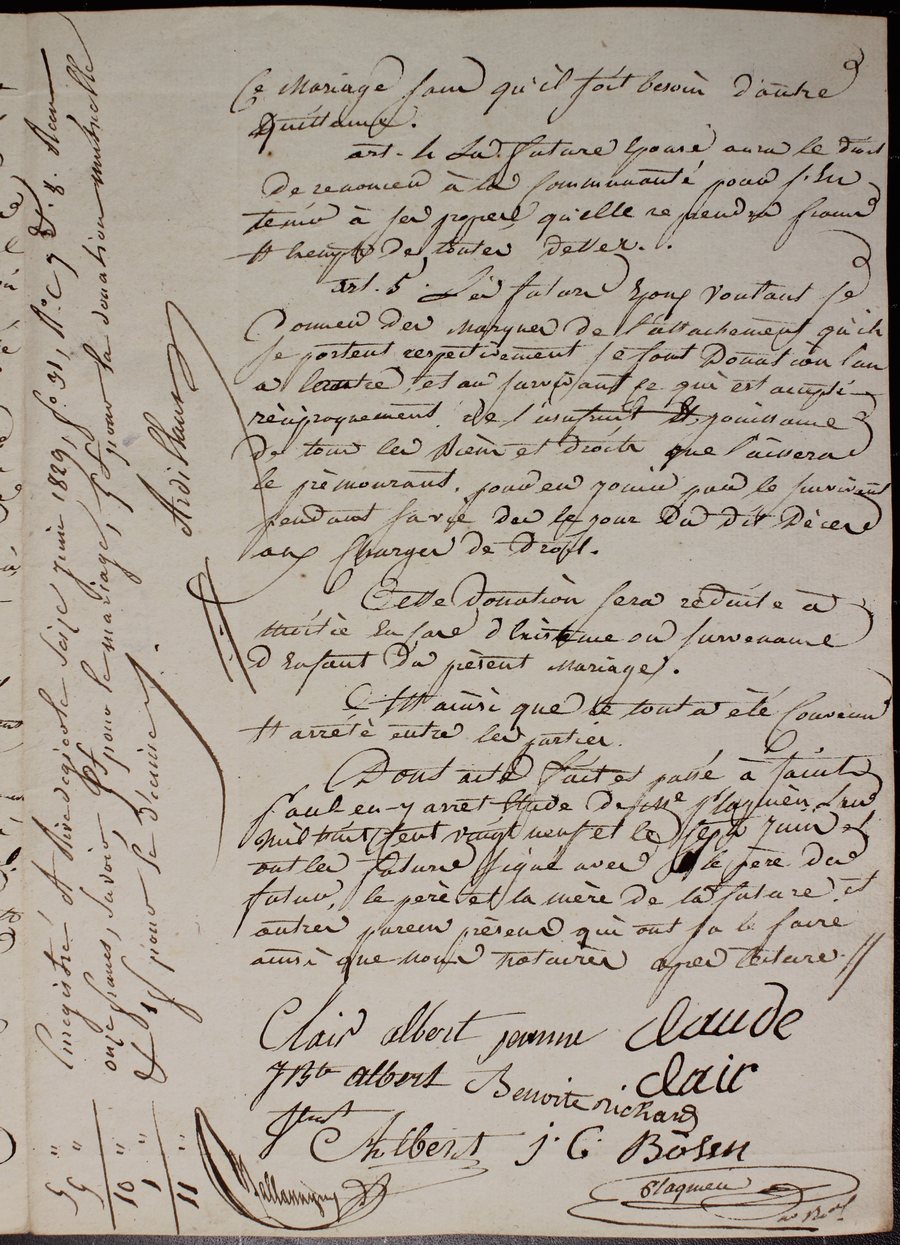 Ce Mariage sans qu'il soit besoin d'autre
Quittance.
art. 4 La future Epouse aura le droit
De renoncer à la Communauté pour s'en
tenir à ses propres qu'elle reprendra francs
Et Exempts de toutes dettes.
art. 5. Les futurs Epoux Voulant se
Donner des Marques de l'attachement qu'ils
se portent respectivement se font Donation l'un
a l'autre et au survivant ce qui est accepté
réciproquement de l'usufruit Et jouissance
De tous les Biens et droits que laissera
le prémourant. pour en jouir par le survivant
pendant sa vie des le jour Du dit Décès
aux Charges de Droit.
Cette Donation sera réduite à
Moitié En cas d'Existence ou survenance
d'Enfant Du présent Mariage.
C'est ainsi que le tout a été Convenu
Et arrêté entre les parties.
Dont acte fait et passé à Saint
Paul en-Jarret Etude de Me Plagnieu L'an
Mil huit Cent vaingt neuf et le sept Juin et
ont les futurs signé avec le père du
futur, le père et la mère de la future et
autres parens présens qui ont su le faire
ainsi que nous notaires apres lecture //
Clair albert jeanne Claude
J Bte albert Benoite richard Clair
Albert j. C. Bosen
Plagnieu
Enregistré à Rivedegier le seize juin 1829, fo 31, Ro C 7 & 8. Reçu
onze francs, savoir, 5f pour le mariage, 5f pour la donation mutuelle
& 1f pour le décime.
Ardillaux
5 "
5 "
10 "
1 "
11 "